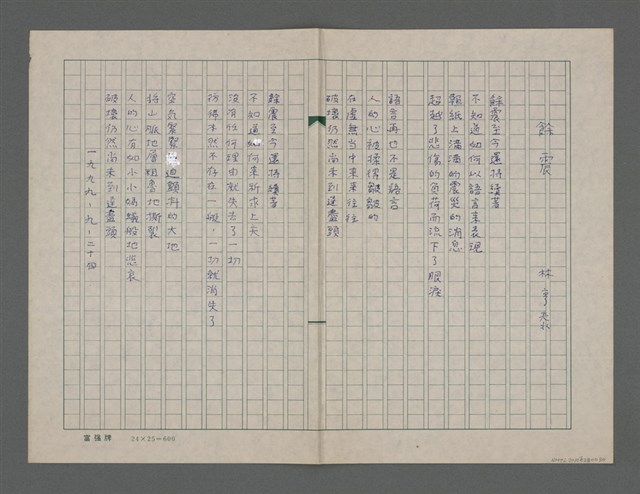 餘震
林亨泰
餘震至今還持續著
不知道如何以語言來表現
報紙上滿滿的震災的消息
超越了悲傷的負荷而流下了眼淚
語言再也不是語言
人的心被搖得皺皺的
在虛無當中來來往往
破壞仍然尚未到達盡頭
餘震至今還持續著
不知道如何來祈求上天
沒有任何理由就失去了一切
彷彿本來不存在一般，一切就消失了
空氣緊緊壓迫顫抖的大地
將山脈地層粗魯地撕裂
人的心有如小小螞蟻般地悲哀
破壞仍然尚未到達盡頭
一九九九・九・二十四
富強牌 24×25=600